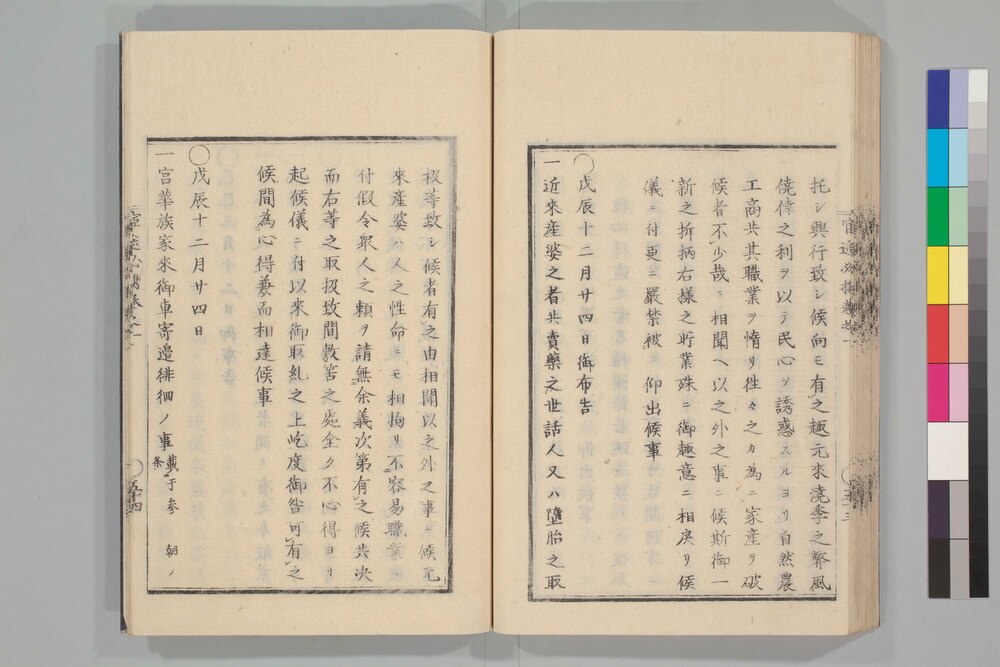 托シ興行致シ候向モ有之趣元來澆季之弊風
僥倖之利ヲ以テ民心ヲ誘惑スルヨリ自然農
工商共其職業ヲ惰リ徃々之カ為ニ家産ヲ破
候者不少哉ニ相聞ヘ以之外之事ニ候斯御一
新之折柄右樣之所業殊ニ御趣意ニ相戻リ候
儀ニ付更ニ嚴禁被 仰出候事
○戊辰十二月廿四日御布告
一近來産婆之者共賣藥之世話人又ハ墮胎之取
扱等致シ候者有之由相聞以之外之事ニ候元
來産婆ハ人之性命ニモ相拘リ不容易職業ニ
付假令衆人之頼ヲ請無余義次第有之候共决
而右等之取扱致間敷筈之處全ク不心得ヨリ
起候儀ニ付以來御取糺之上屹度御咎可有之
候間為心得兼而相達候事
○戊辰十二月廿四日
一宮華族家來御車寄邉徘徊ノ事 載于参 朝ノ
条